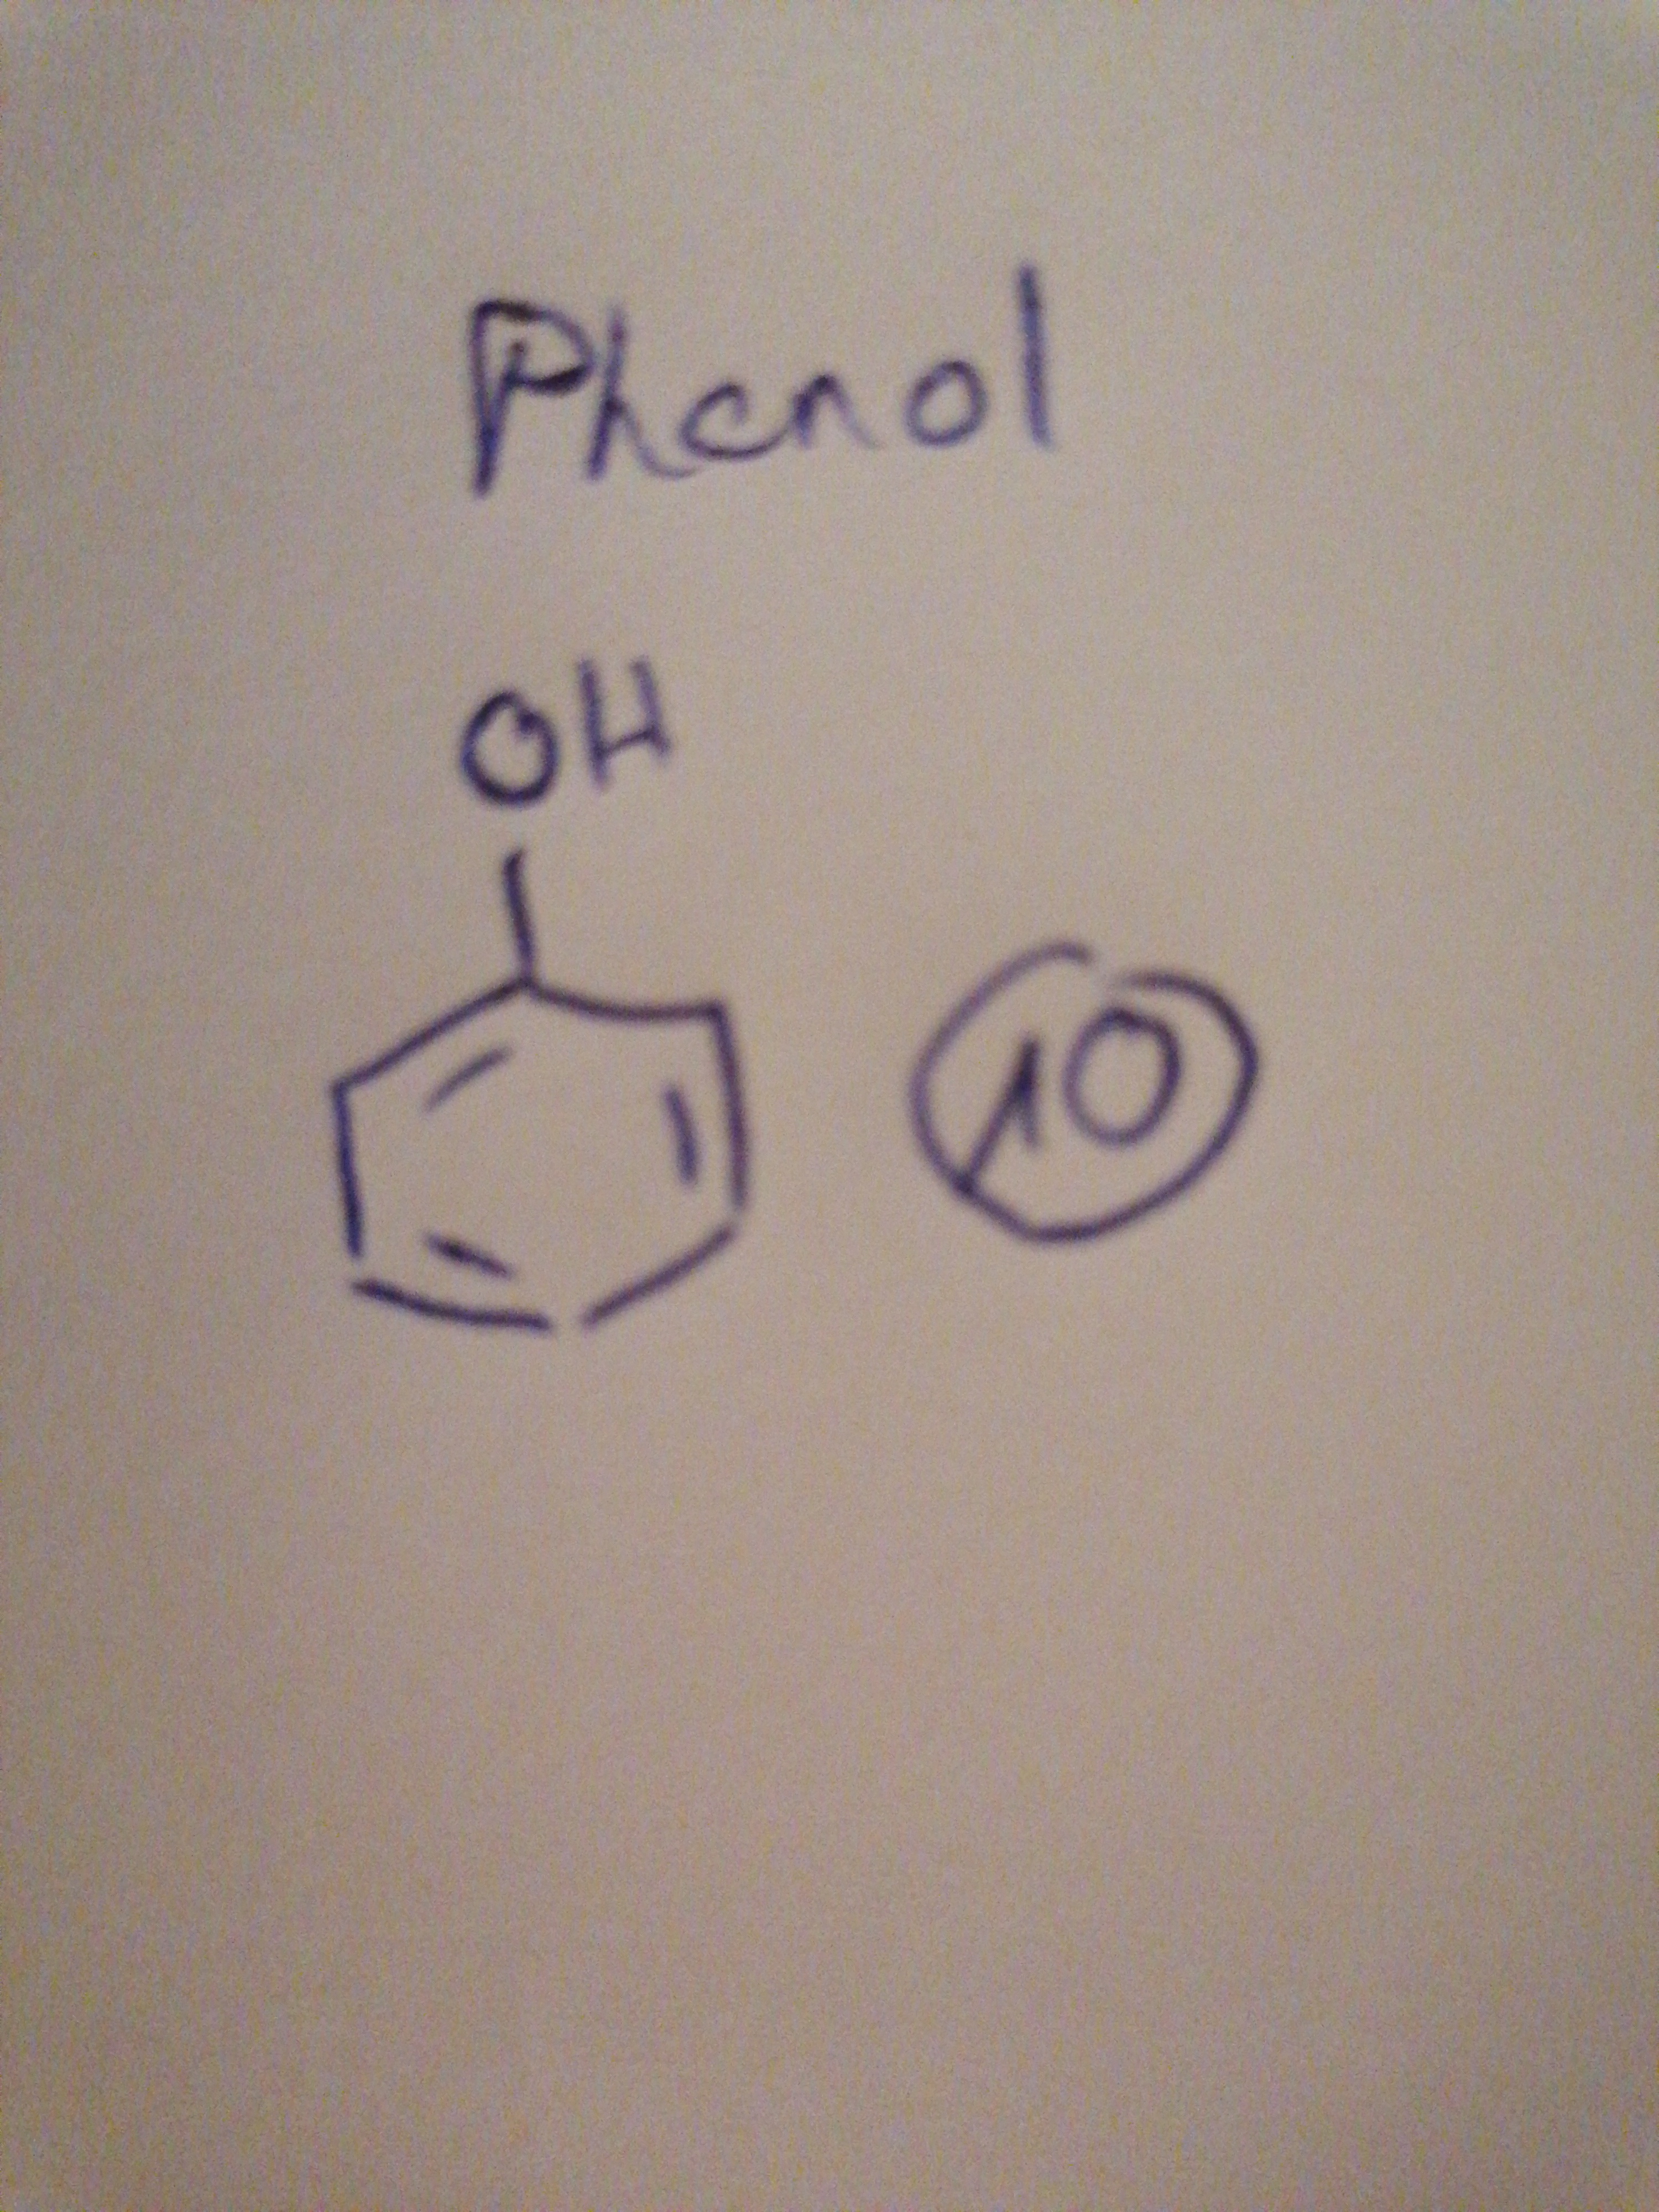 Phenol
OH
10